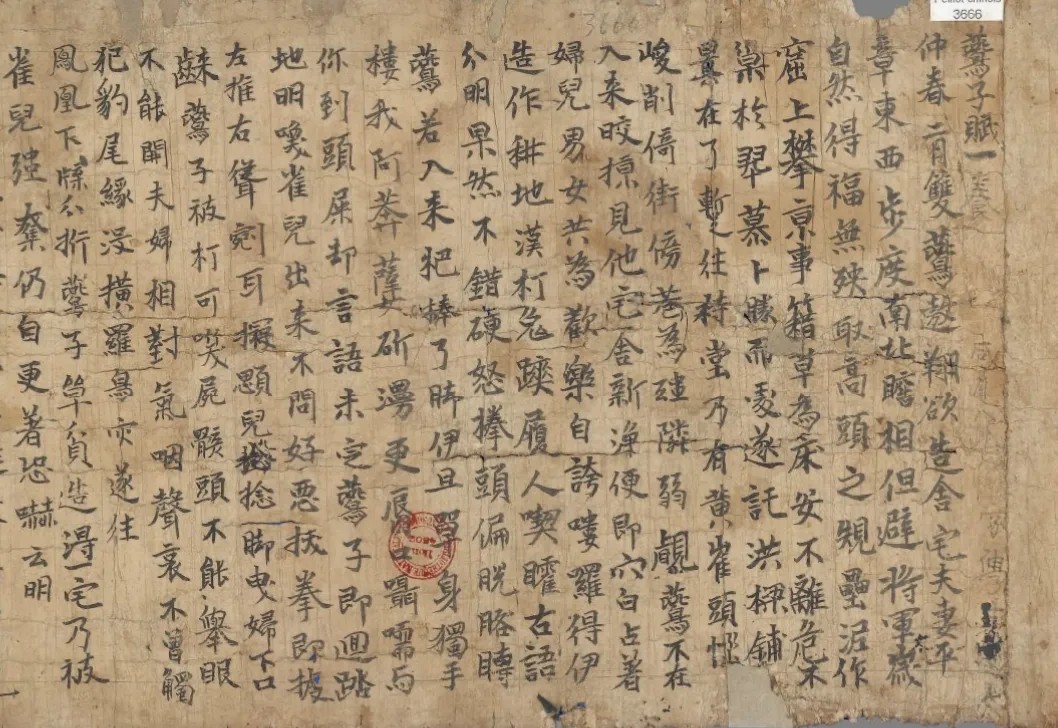 Pelliot chinois
3666
3666
鷰子賦一卷
仲春二月雙鷰翱翔欲造舍宅夫妻平
章東西步度南北瞻相但避將軍歲
自然得福無殃取高頭之規壘泥作
窟上攀梁事籍草為床安不離危不
巢於翠慕卜勝而處遂託洪樑鋪
置在了蹔往堂乃有黃雀頭
峻削倚街傍巷為強憐弱覷鷰不在
入來皎掠見他宅舍新淨便即穴白占著
婦兒男女共為歡樂自誇嘍羅得伊
造作耕地漢打兔蹼履人喫臛古語
分明果然不錯硬怒拳頭偏脫胳膊
鷰若入來把棒了脨伊且單身獨手
樓我阿莽孽斫更唇口囁嚅与
你到頭屎却言語未定鷰子即迴踏
地明喚雀兒出來不問好惡拔拳即披
左推右聳剜耳摑顋兒捻脚曳婦下口
鷰子被打可笑屍骸頭不能舉眼
不能開夫婦相對氣咽聲哀不曾觸
犯豹尾緣沒橫羅鳥灾遂往
鳳凰下牒分析鷰子單貧造得一宅乃被
雀兒強奪仍自更著恐嚇云明